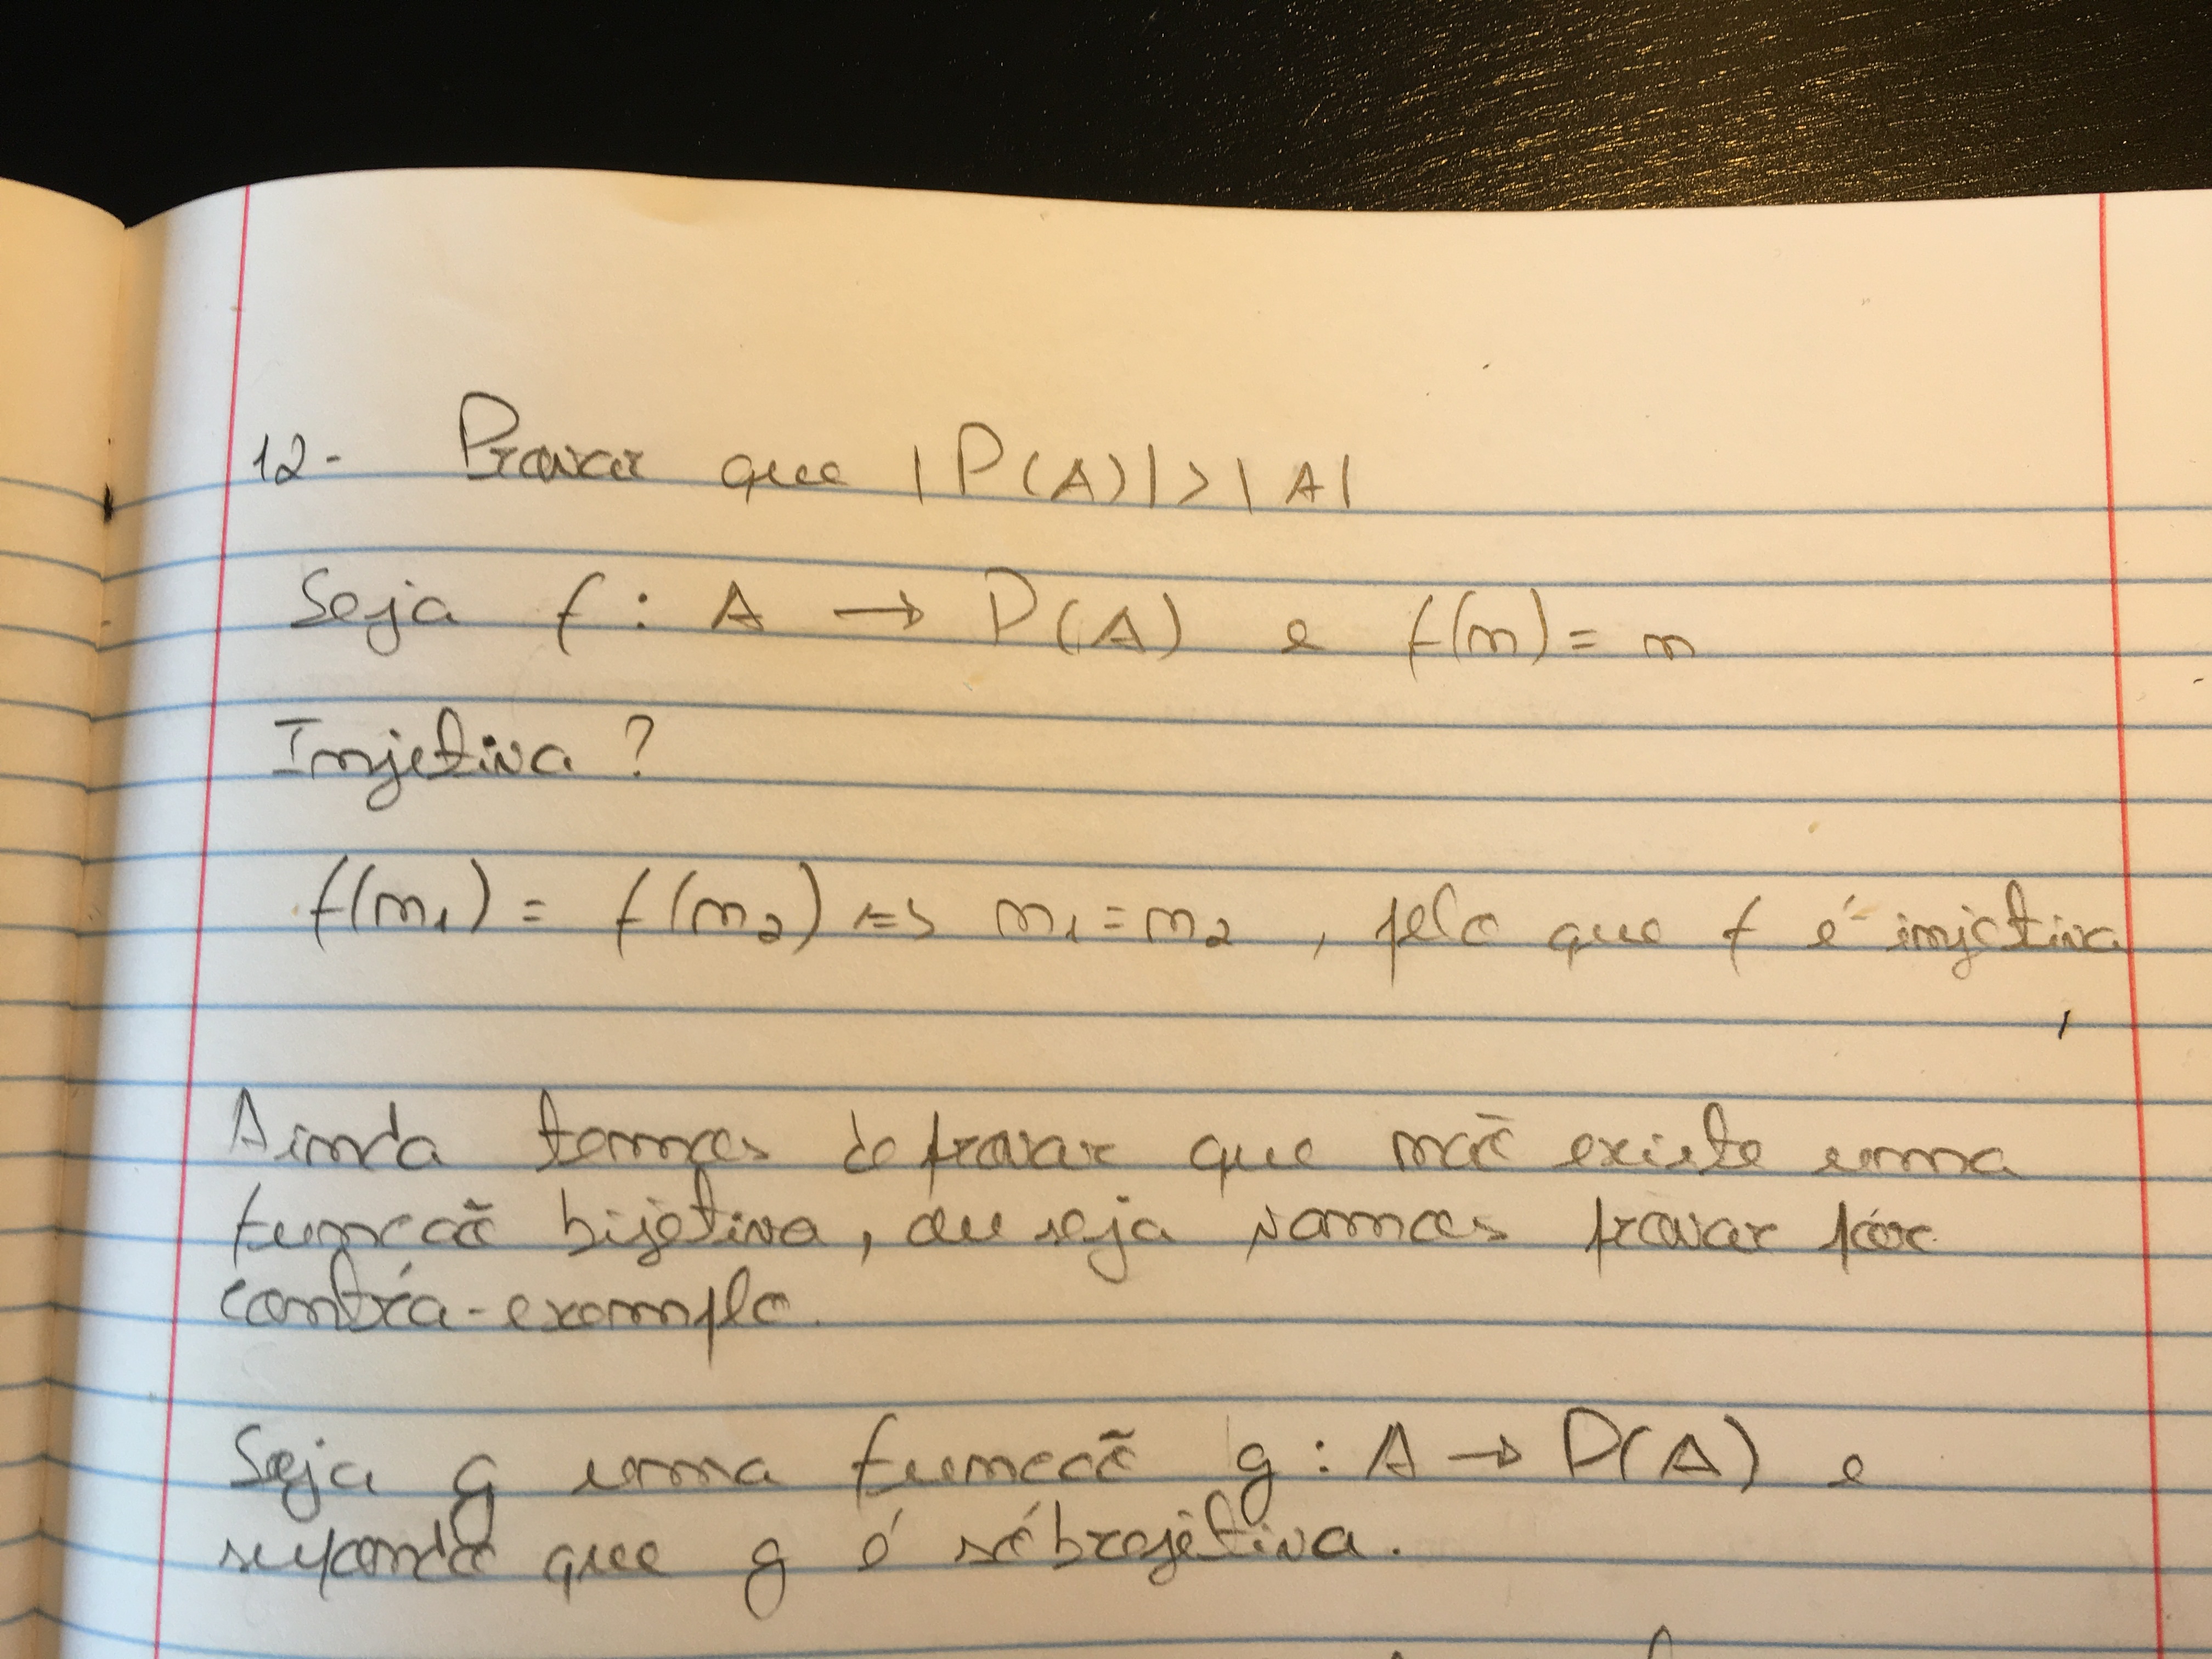 12- Provar que |P(A)|>|A|
Seja f: A → P(A) e f(n)= n
Injetiva?
f(n1) = f(n2) ⇔ n1=n2, pelo que f é injetiva
Ainda temos de provar que não existe uma
função bijetiva, ou seja vamos provar por
contra-exemplo.
Seja g uma função g: A → P(A) e
supondo que g é sobrejetiva.